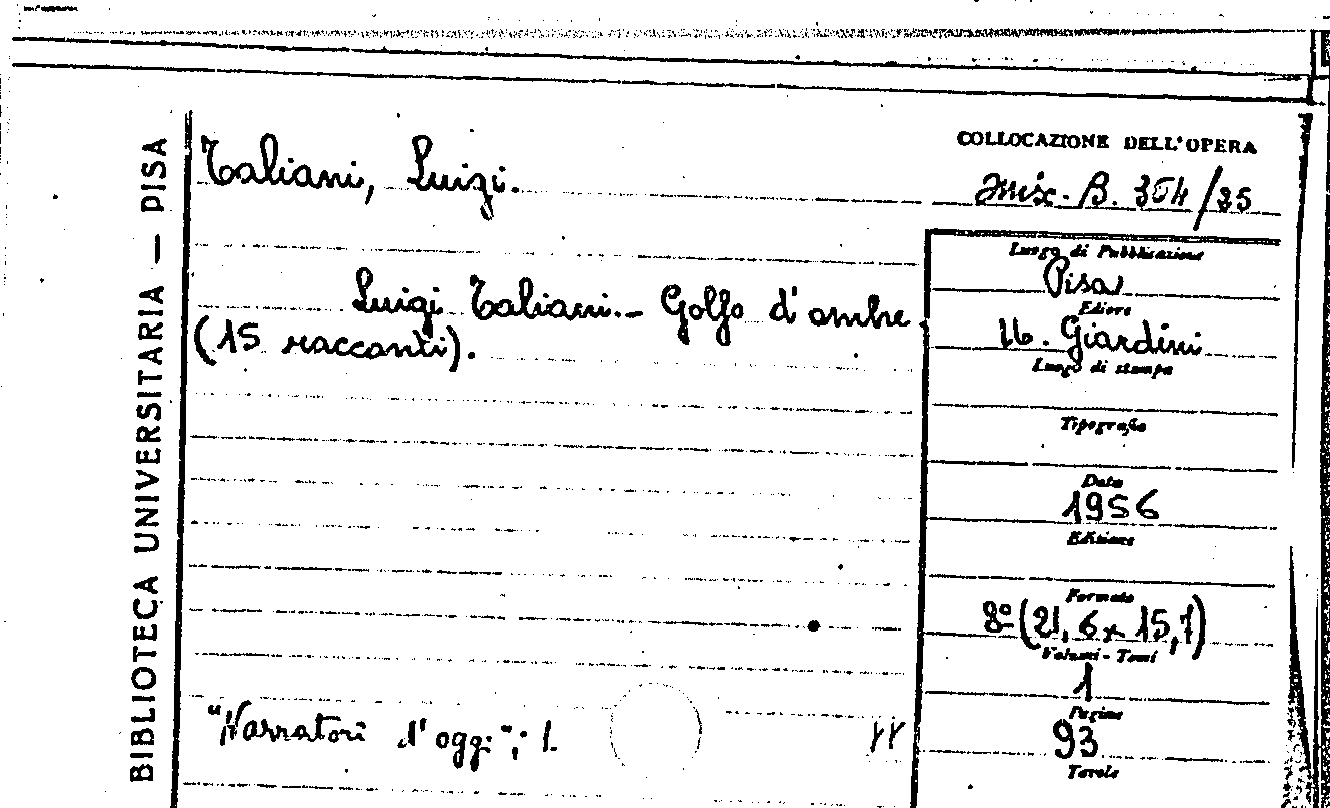 BIBLIOTECA UNIVERSITARIA — PISA
Taliani, Luigi.
Luigi Taliani.- Golfo d'ombre.
(15 racconti).
"Narratori d'oggi"; 1.
COLLOCAZIONE DELL'OPERA
Misc. B. 354/35
Luogo di Pubblicazione
Pisa
Editore
U. Giardini
Luogo di stampa
Tipografia
Data
1956
Edizione
Formato
8º (21,6 x 15,1)
Volumi - Tomi
1
Pagine
93
Tavole